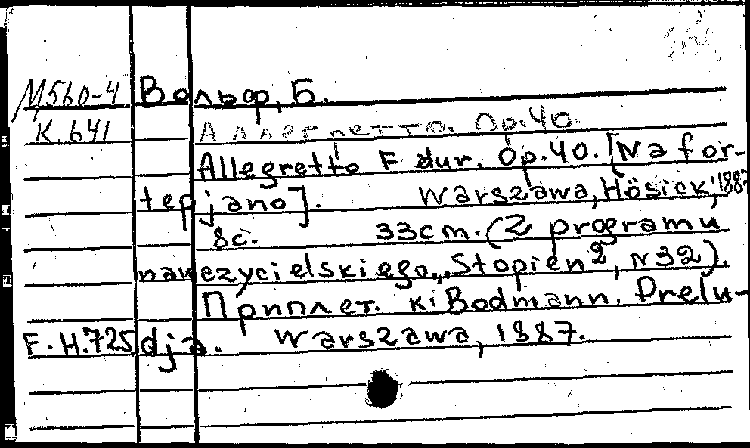 M560-4 Вольф, Б.
К.641 Аллегретто. Op.40.
Allegretto F dur. Op.40. [Na for-
tepjano]. Warszawa, Hösick, 1887
8c. 33cm. (Z programu
nauczycielskiego, "Stopień 2, N32).
Приплет. к: Bodmann. Prelu-
F.H.725 dja. Warszawa, 1887.